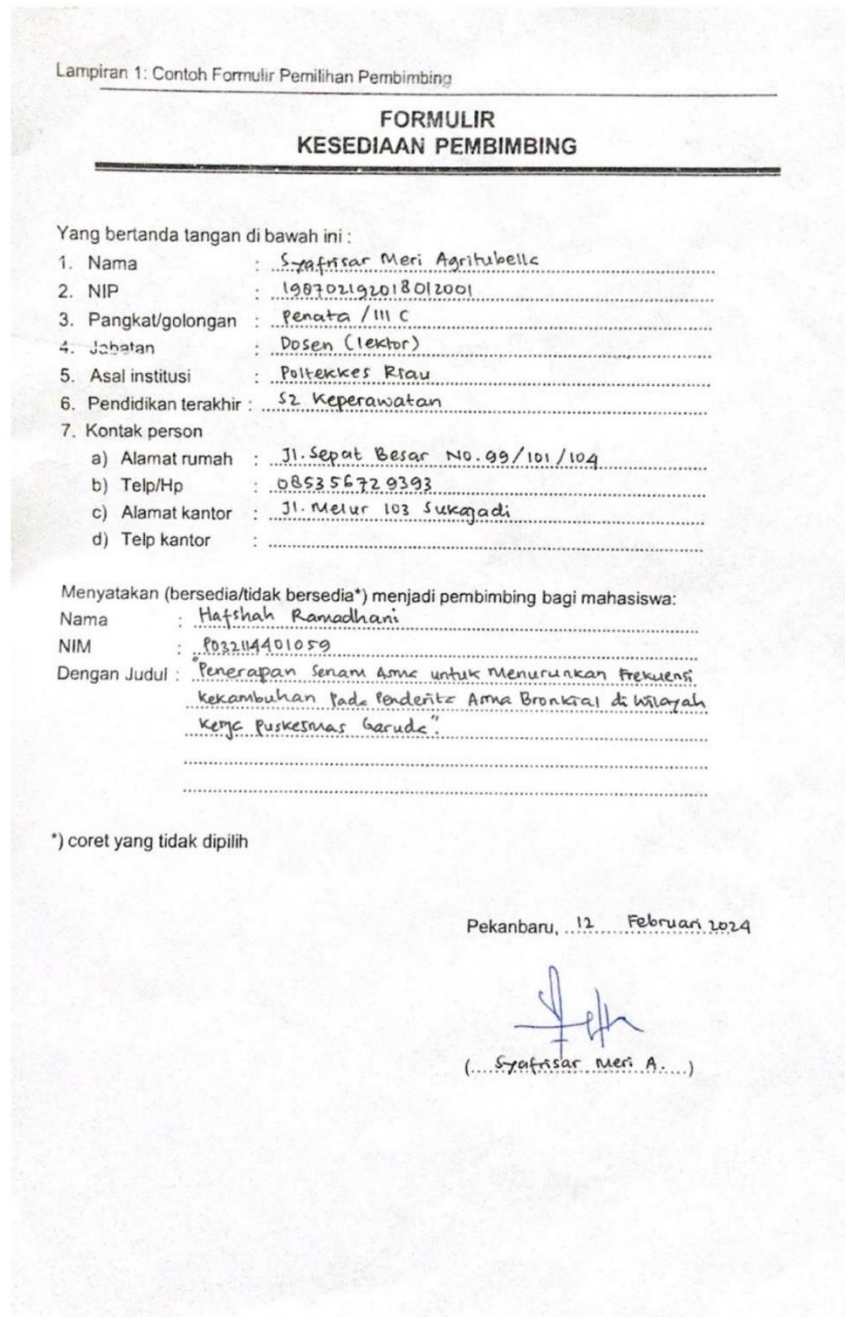 Lampiran 1: Contoh Formulir Pemilihan Pembimbing
FORMULIR
KESEDIAAN PEMBIMBING
Yang bertanda tangan di bawah ini :
1. Nama : Syafrisar Meri Agritubella
2. NIP : 198702192018012001
3. Pangkat/golongan : Penata / III C
4. Jabatan : Dosen (lektor)
5. Asal institusi : Poltekkes Riau
6. Pendidikan terakhir : S2 Keperawatan
7. Kontak person
a) Alamat rumah : Jl. Sepat Besar No. 99/101/104
b) Telp/Hp : 085356729393
c) Alamat kantor : Jl. Melur 103 Sukajadi
d) Telp kantor :
Menyatakan (bersedia/tidak bersedia*) menjadi pembimbing bagi mahasiswa:
Nama : Hafshah Ramadhani
NIM : P032114401059
Dengan Judul : "Penerapan Senam Asma untuk Menurunkan Frekuensi
Kekambuhan Pada Penderita Asma Bronkial di Wilayah
Kerja Puskesmas Garuda".
*) coret yang tidak dipilih
Pekanbaru, 12 Februari 2024
(.... Syafrisar Meri A. ....)